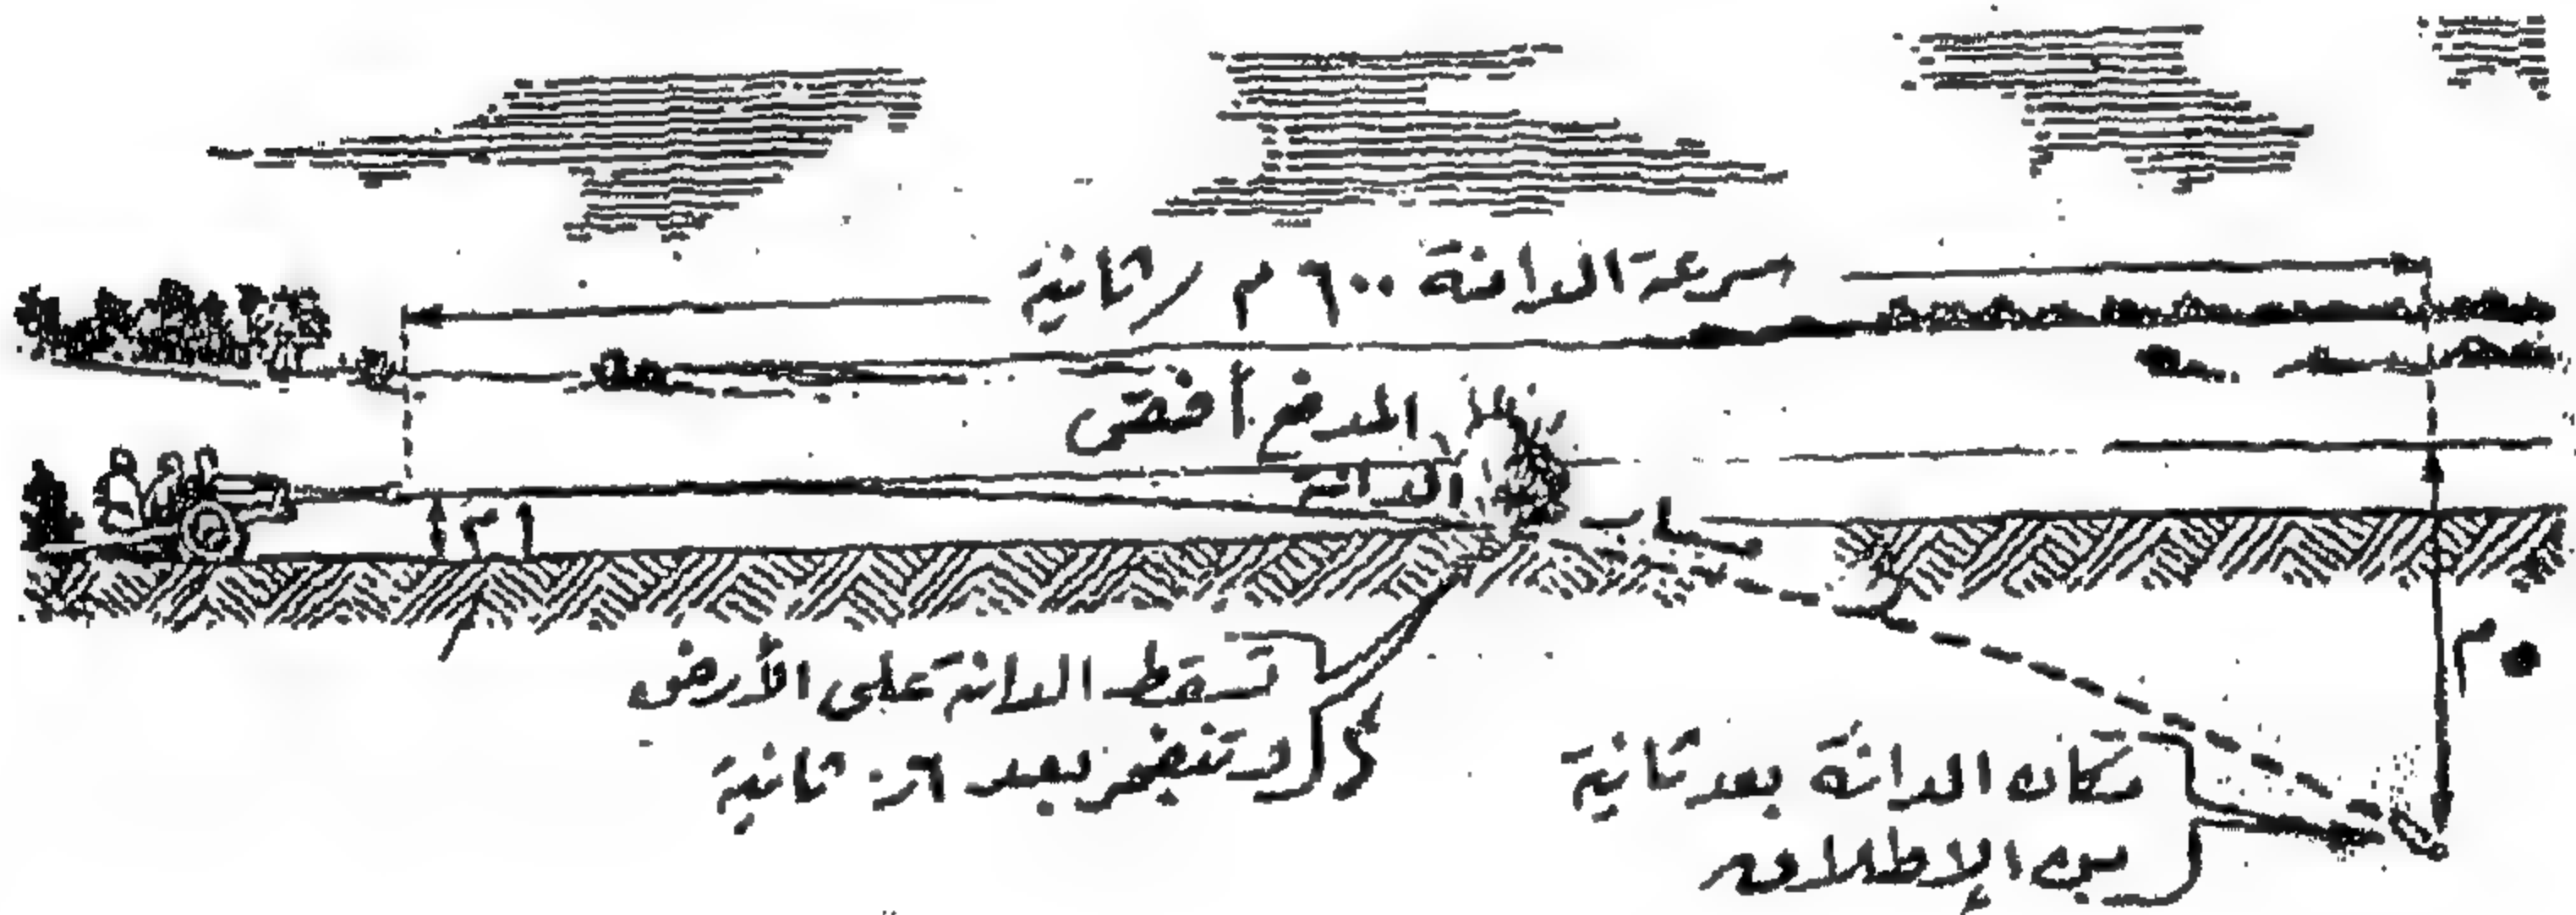 سرعة الدانة ٦٠٠ م / ثانية
المدفع أفقى
الدانة
١ م
م
تسقط الدانة على الأرض
وتنفجر بعد ٦ر٠ ثانية
مكان الدانة بعد ثانية
من الإطلاق